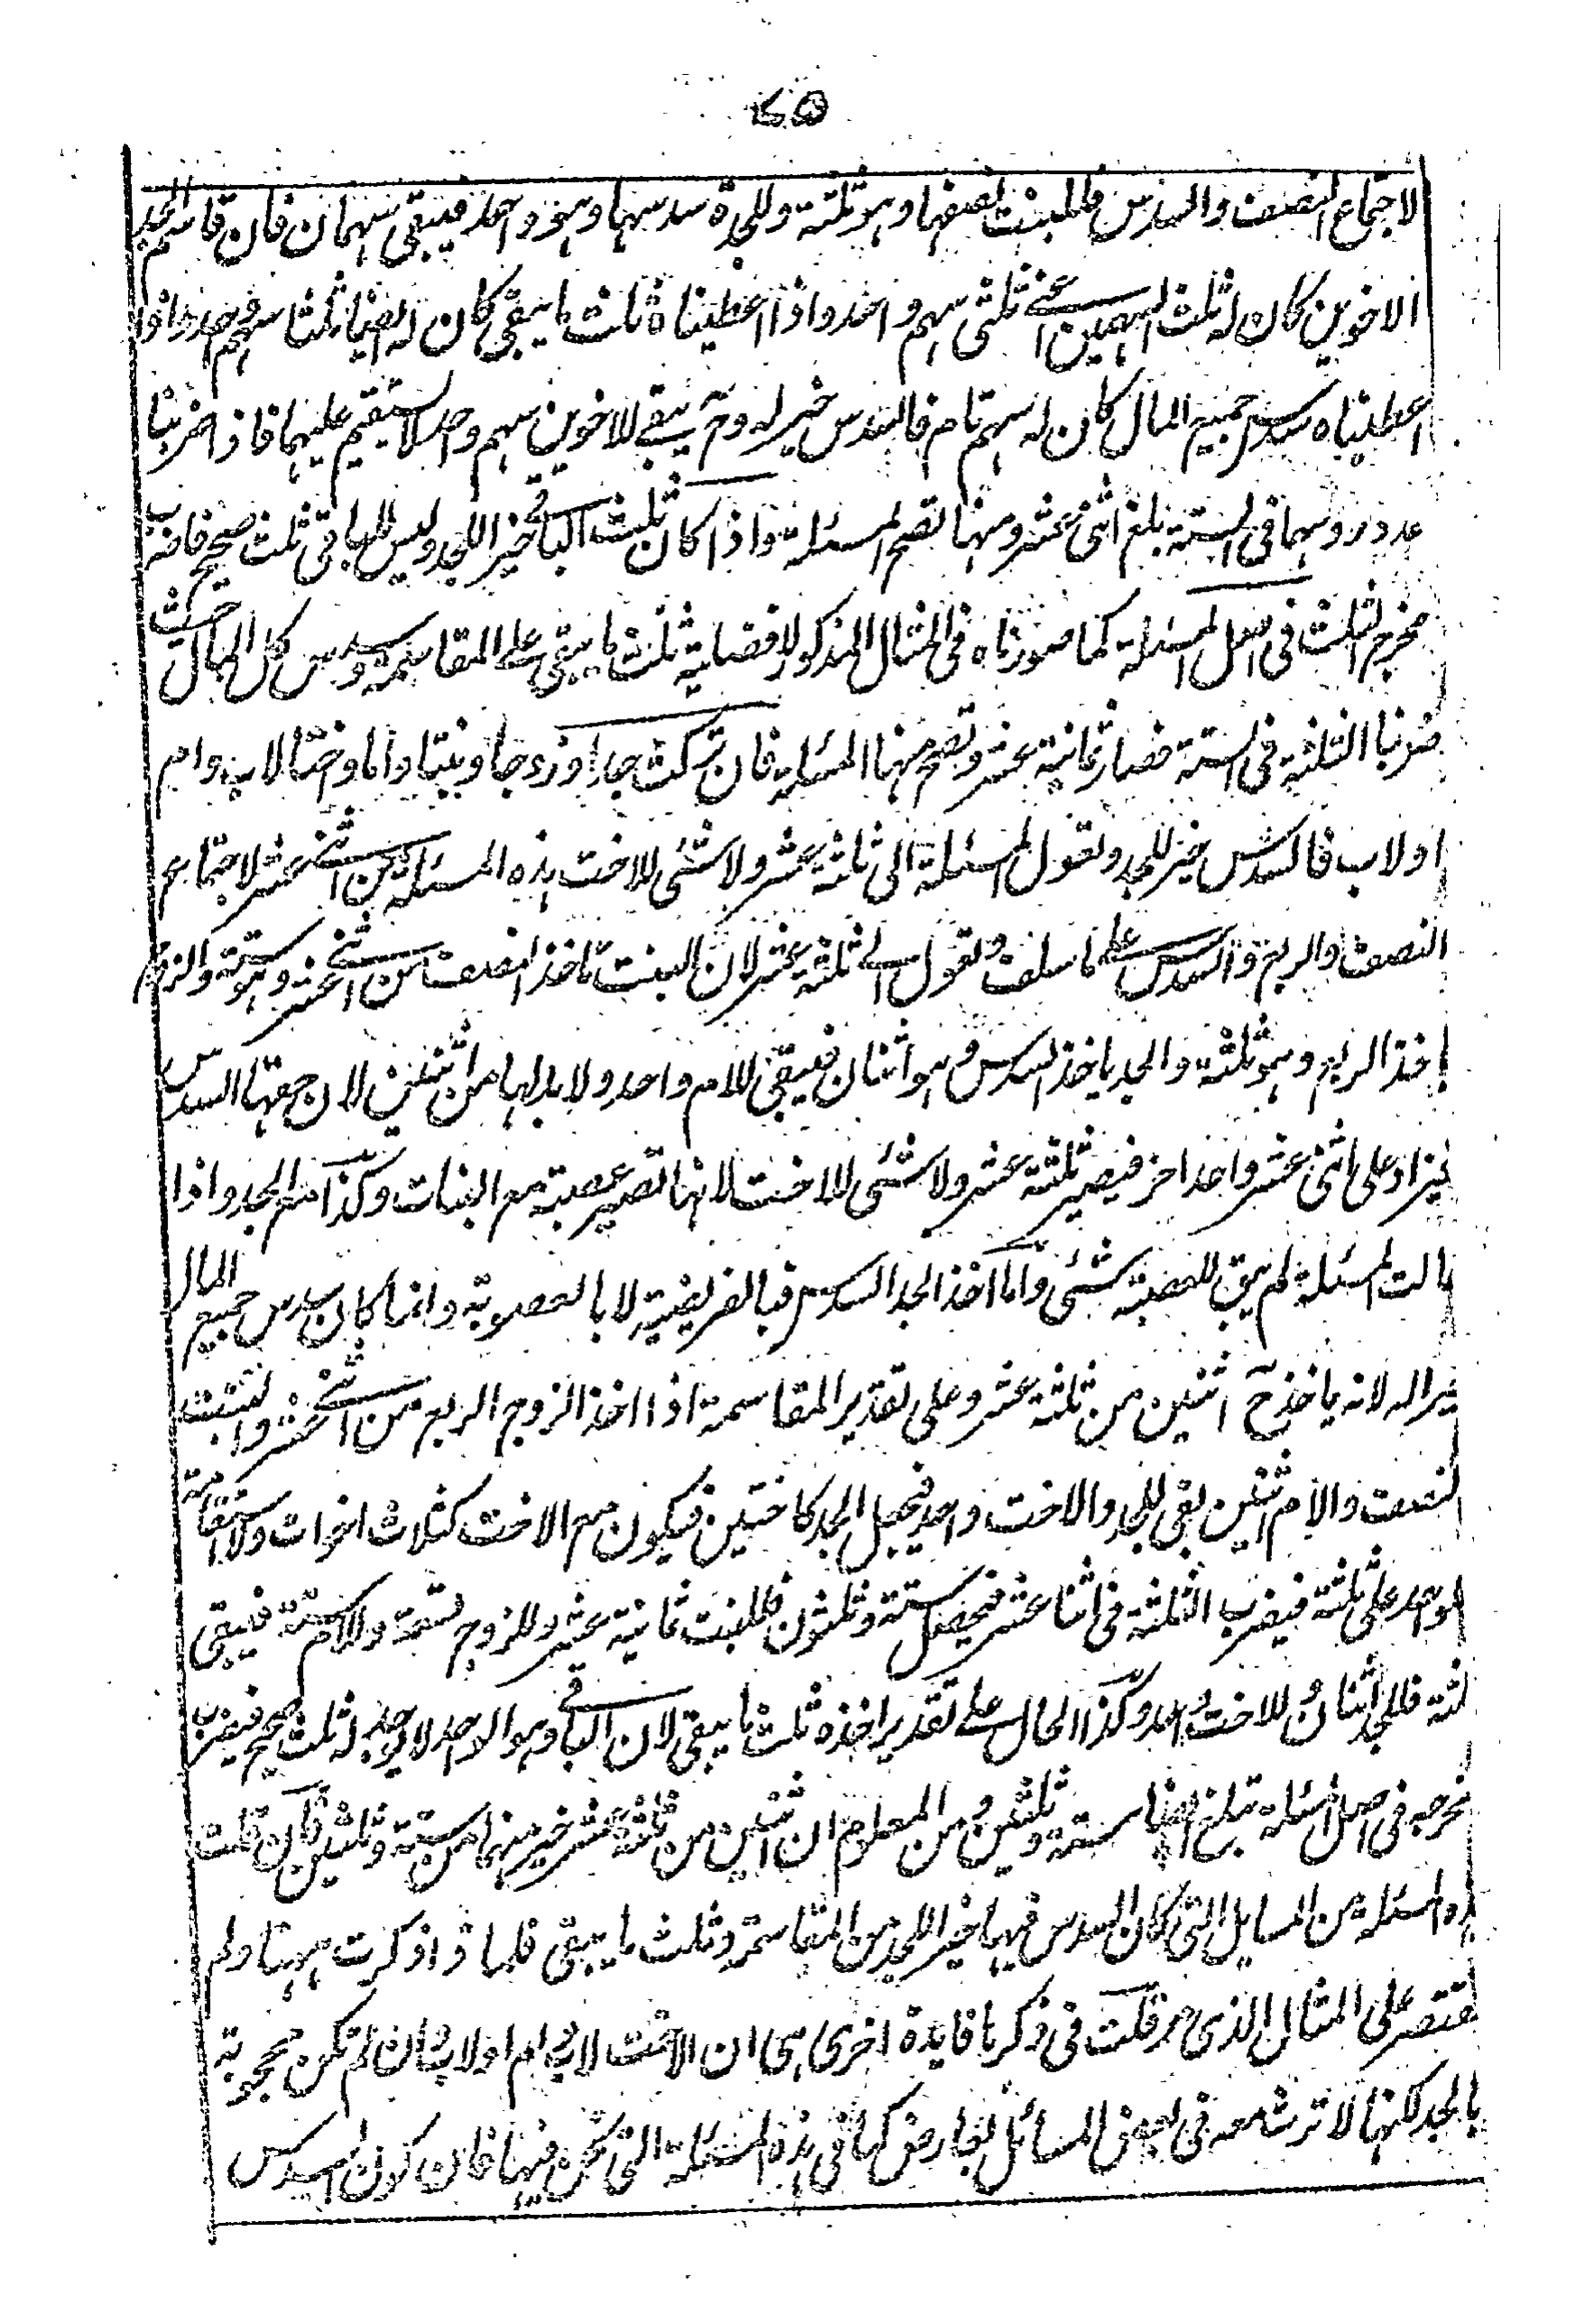 ٤٥
لاجتماع النصف والسدس فللبنت نصفها وهو ثلثة وللجدة سدسها وهو واحد فيبقى سهمان فان قاسم الجد
الاخوين كان له ثلث السهمين اعنى ثلثى سهم واحد واذا اعطيناه ثلث ما يبقى كان له ايضا ثلثا سهم واحد واذا
اعطيناه سدس جميع المال كان له سهم تام فالسدس خير له وح يبقى للاخوين سهم واحد لا يستقيم عليهما فاذا ضربنا
عدد رؤسهما فى الستة بلغ اثنى عشر ومنها تصح المسئلة واذا كان ثلث الباقى خيرا للجد وليس للباقى ثلث صحيح فاضرب
مخرج الثلث فى اصل المسئلة كما صورناه فى المثال المذكور لافضلية ثلث ما يبقى على المقاسمة وسدس كل المال حيث
ضربنا الثلثة فى الستة فصار ثمانية عشر وتصح منها المسئلة فان تركت جدا وزوجا وبنتا واما واختا لاب وام
او لاب فالسدس خير للجد وتعول المسئلة الى ثلثة عشر ولا شئى للاخت هذه المسئلة من اثنى عشر لاجتماع
النصف والربع والسدس على ما سلف وتعول الى ثلثة عشر لان البنت تاخذ النصف من اثنى عشر وهو ستة والزوج
ياخذ الربع وهو ثلثة والجد ياخذ السدس وهو اثنان فيبقى للام واحد ولا بد لها من اثنين لان جمعتها السدس
فيزاد على اثنى عشر واحد اخر فيصير ثلثة عشر ولا شئى للاخت لانها تصير عصبة مع البنات وكذا مع الجد واذا
عالت المسئلة لم يبق للعصبة شئى واما اخذ الجد السدس فبالفريضية لا بالعصوبة وانما كان سدس جميع المال
خيرا له لانه ياخذ ح اثنين من ثلثة عشر وعلى تقدير المقاسمة اذا اخذ الزوج الربع من اثنى عشر والبنت
النصف والام اثنين بقى للجد والاخت واحد فيجعل الجد كاختين فيكون مع الاخت كثلاث اخوات ولا استقامة
لواحد على ثلثة فيضرب الثلثة فى اثنا عشر فيحصل ستة وثلثون فللبنت ثمانية عشر وللزوج تسعة وللام ستة فيبقى
ثلثة فللجد اثنان وللاخت واحد وكذا الحال على تقدير اخذه ثلث ما يبقى لان الباقى وهو الواحد لا يوجد له ثلث صحيح فيضرب
مخرجه فى اصل المسئلة تبلغ ايضا ستة وثلثين ومن المعلوم ان اثنين من ثلثة عشر خير منهما من ستة وثلثين فان قلت
هذه المسئلة من المسايل التى كان السدس فيها خيرا للجد من المقاسمة وثلث ما يبقى فلماذا ذكرت ههنا ولم
يقتصر على المثال الذى مر قلت فى ذكرها فايدة اخرى هى ان الاخت لاب وام او لاب وان لم تكن محجوبة
بالجد لكنها لا ترث معه فى بعض المسائل لعارض كما فى هذه المسئلة التى نحن فيها فان كون السدس